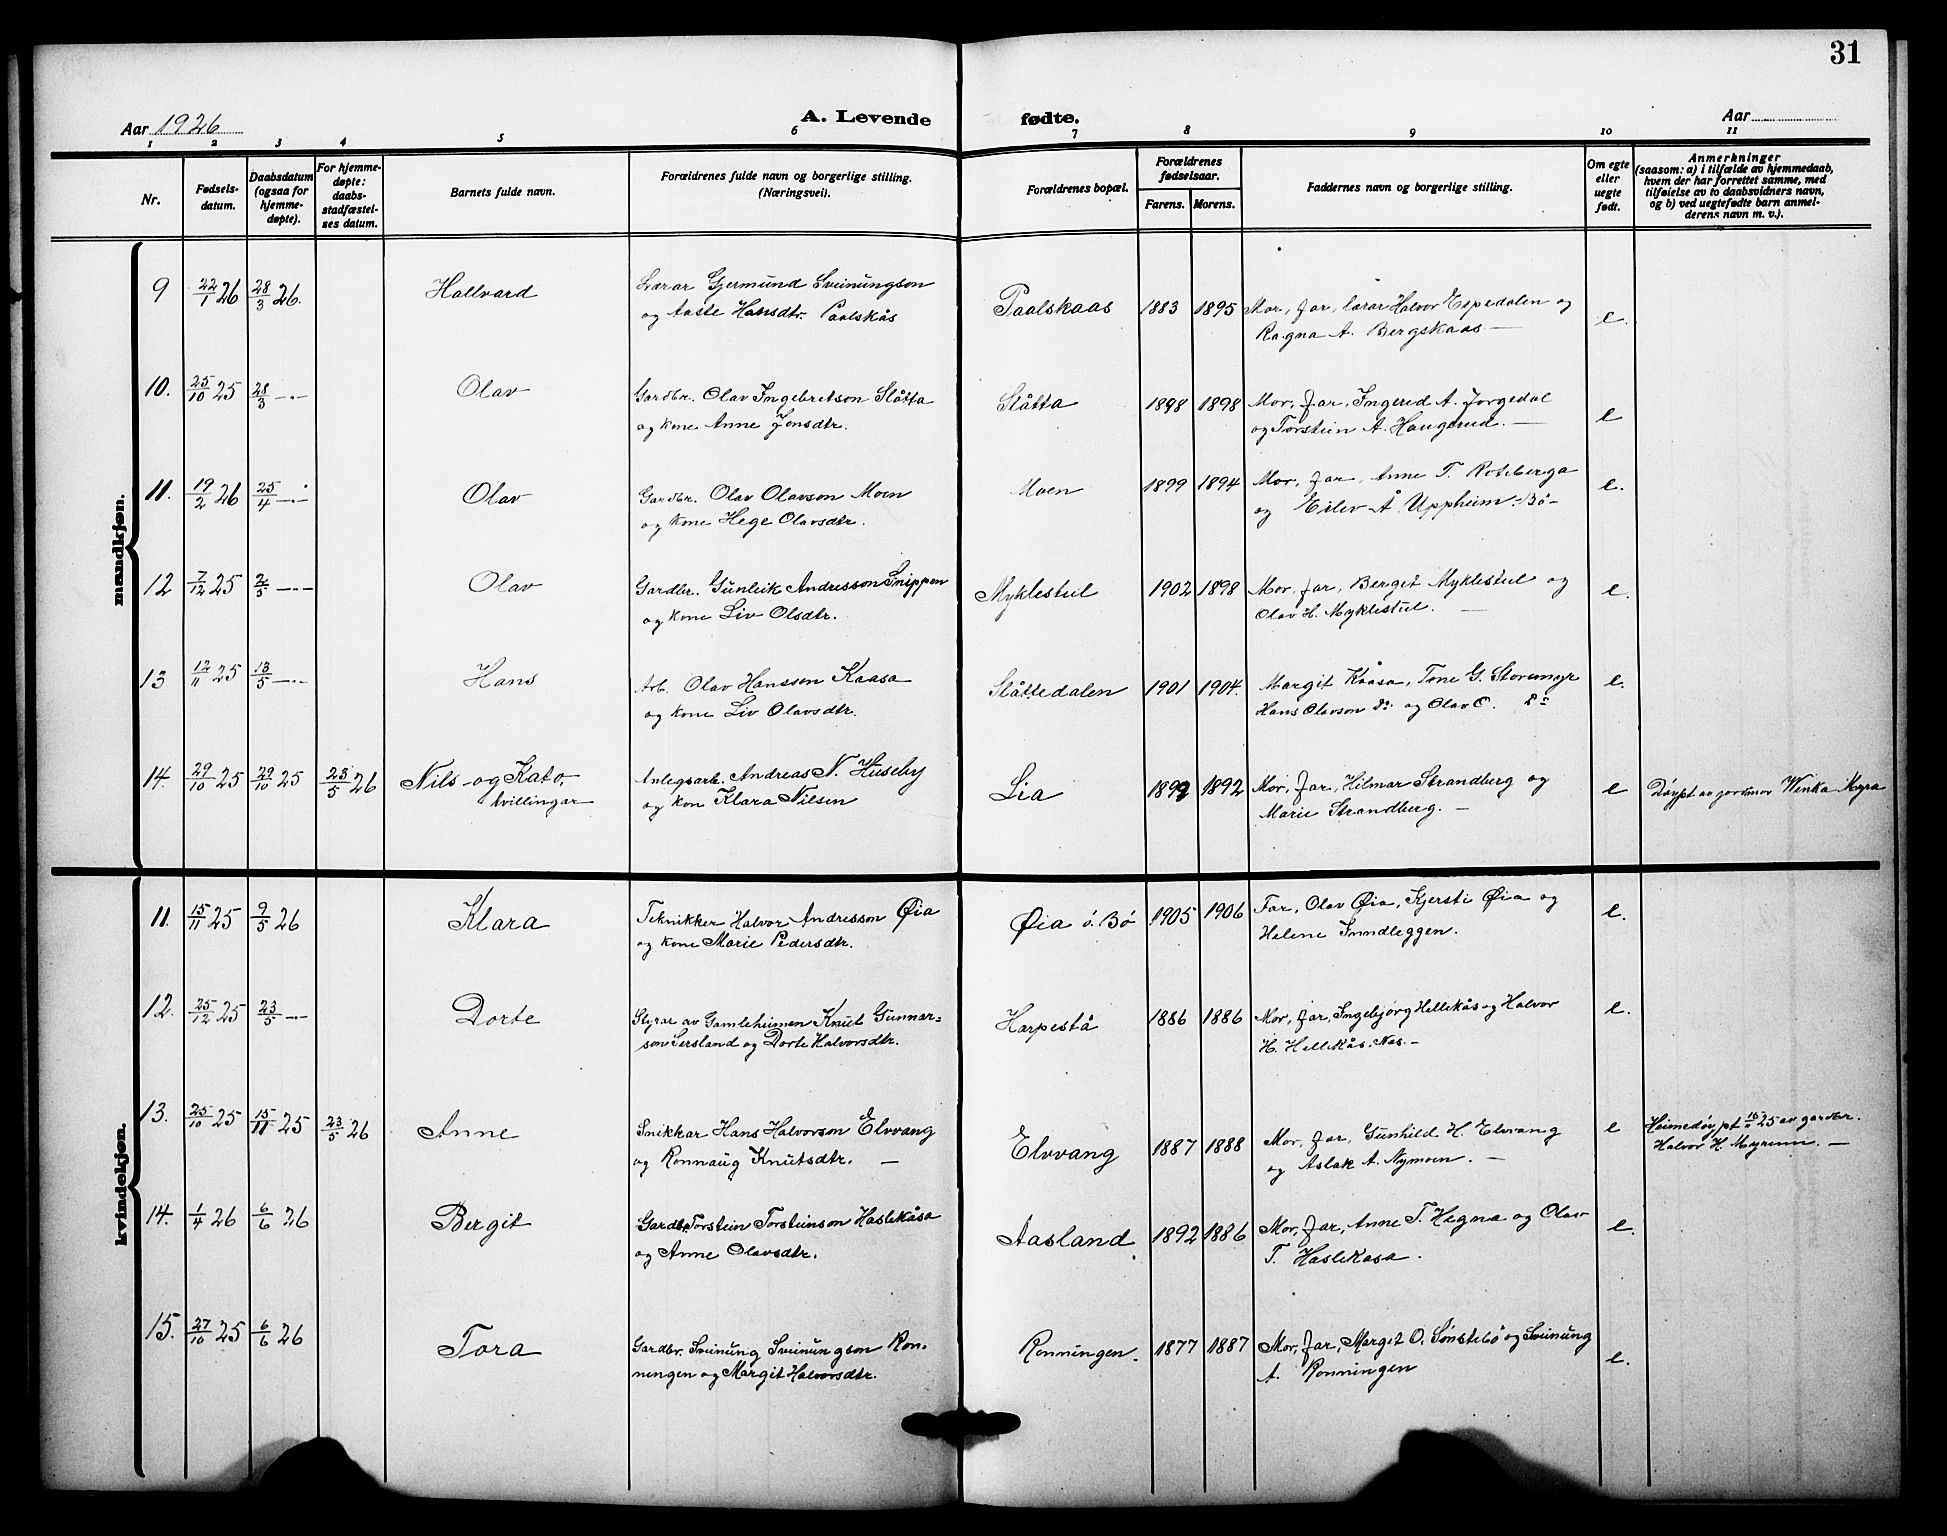 31
Aar 1926
A. Levende fødte.
Aar
1 2 3 4 5 6 7 8 9 10 11
Nr.
Fødsels-
datum.
Daabsdatum
(ogsaa for
hjemme-
døpte).
For hjemme-
døpte:
daabs-
stadfæstel-
ses datum.
Barnets fulde navn.
Forældrenes fulde navn og borgerlige stilling.
(Næringsvei).
Forældrenes bopæl.
Forældrenes
fødselsaar.
Farens. Morens.
Faddernes navn og borgerlige stilling.
Om egte
eller
uegte
født.
Anmerkninger
(saasom: a) i tilfælde av hjemmedaab,
hvem der har forrettet samme, med
tilføielse av to daabsvidners navn,
og b) ved uegtefødte barn anmel-
derens navn m. v.).
mandkjøn.
9 22/1 26 28/3 26. Hallvard Lærar Gjermund Sveinungson Paalskaas 1883 1895 Mor, far, lærar Halvor Espedalen og e.
og Aaste Hansdtr. Paalskås Ragna A. Bergskaas —
10. 25/10 25 28/3 -"- Olav Gardbr. Olav Ingebretson Slåtta Slåtta 1898 1898 Mor, far, Ingerid A. Jorgedal e
og kone Anne Jonsdtr. og Torstein A. Haugerud. —
11. 19/2 26 25/4 -"- Olav Gardbr. Olav Olavson Moen Moen 1899 1894 Mor, far, Anne T. Roteberga e.
og kone Hege Olavsdtr. og Eilev Å. Uppheim - Bö -
12 7/12 25 2/5 -"- Olav Gardbr. Gunleik Andresson Snippen Myklestul 1902 1898 Mor, far, Berget Myklestul og e.
og kone Liv Olsdtr. Olav H. Myklestul. —
13 12/11 25 13/5 -"- Hans Arb. Olav Hansson Kaasa Slåttedalen 1901 1904. Margit Kåasa, Tone G. Storemyr e.
og kone Liv Olavsdtr. Hans Olavson do. og Olav O. do
14. 29/10 25 29/10 25 23/5 26 Nils og Kato, Anlegsarb. Andreas N. Huseby Lia 1892 Mor, far, Hilmar Strandberg og e Döypt av jordmor Winka Myra
tvillingar og kon Klara Nilsen Marie Strandberg. —
kvindekjøn.
11. 15/11 25 9/5 26 Klara Teknikker Halvor Andresson Øia Øia i Bö 1905 1906 Far, Olav Øia, Kjersti Øia og e.
og kone Marie Pedersdtr. Helene Inndleggen.
12. 25/12 25 23/5 -"- Dorte Styrar av Gamleheimen Knut Gunnar= Harpestå 1886 1886 Mor, far, Ingebjörg Hellikås og Halvor e.
son Sersland og Dorte Halvorsdtr. H. Hellikås. Nes. —
13. 25/10 25 15/11 25 23/5 26 Anne Snikkar Hans Halvorson Elvvang Elvvang 1887 1888 Mor, far, Gunhild H. Elvvang e Heimedöypt 25 av gardbr.
og Ronnaug Knutsdtr. — og Aslak A. Nymoen. — Halvor H. Myrum. —
14. 1/4 26 6/6 26 Bergit Gardbr. Torstein Torsteinson Haslekåsa Aasland 1892 1886 Mor, far, Anne T. Hegna og Olav e.
og Anne Olavsdtr. T. Haslekasa.
15. 27/10 25 6/6 26 Tora Gardbr. Sveinung Sveinungson Ron- Ronningen. 1877 1887 Mor, far, Marget O. Sönstebö og Sveinung e.
ningen og Margit Halvorsdtr. A. Ronningen